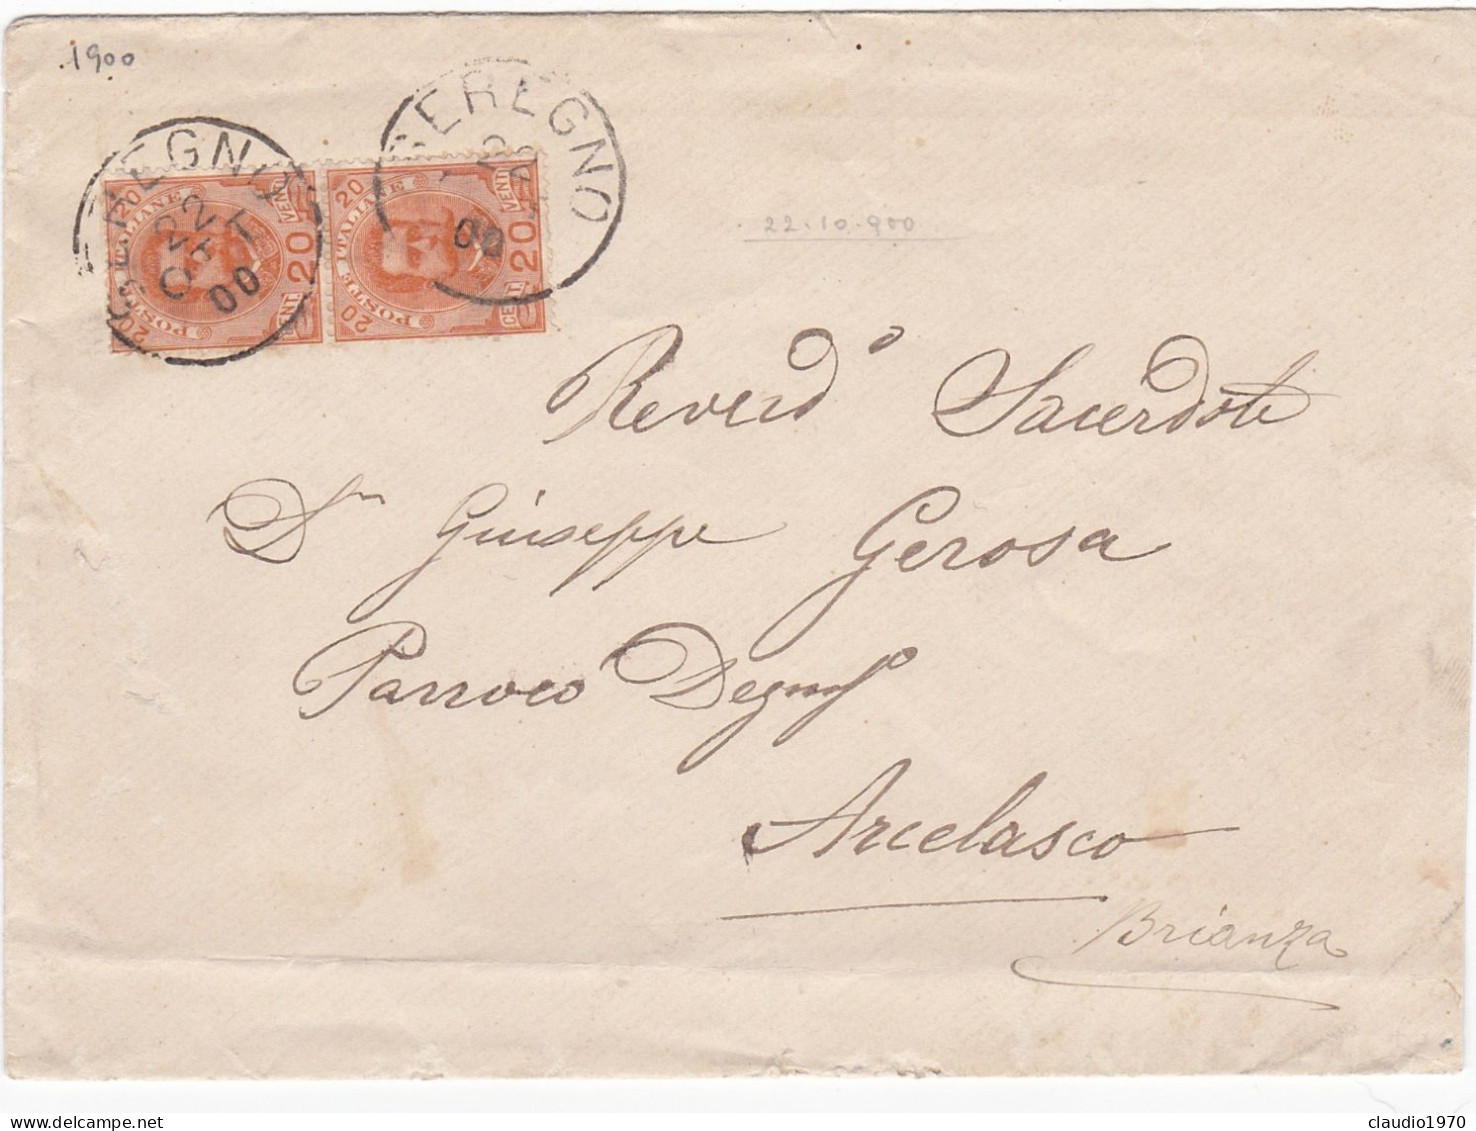 1900
SEREGNO
22
OTT
00
SEREGNO
22
00
20
POSTE ITALIANE
20
CENT. 20 VENTI
20
POSTE ITALIANE
20
CENT. 20 VENTI
22.10.900
Reverd° Sacerdote
Dn Giuseppe Gerosa
Parroco Degno
Arcelasco
Brianza
claudio1970